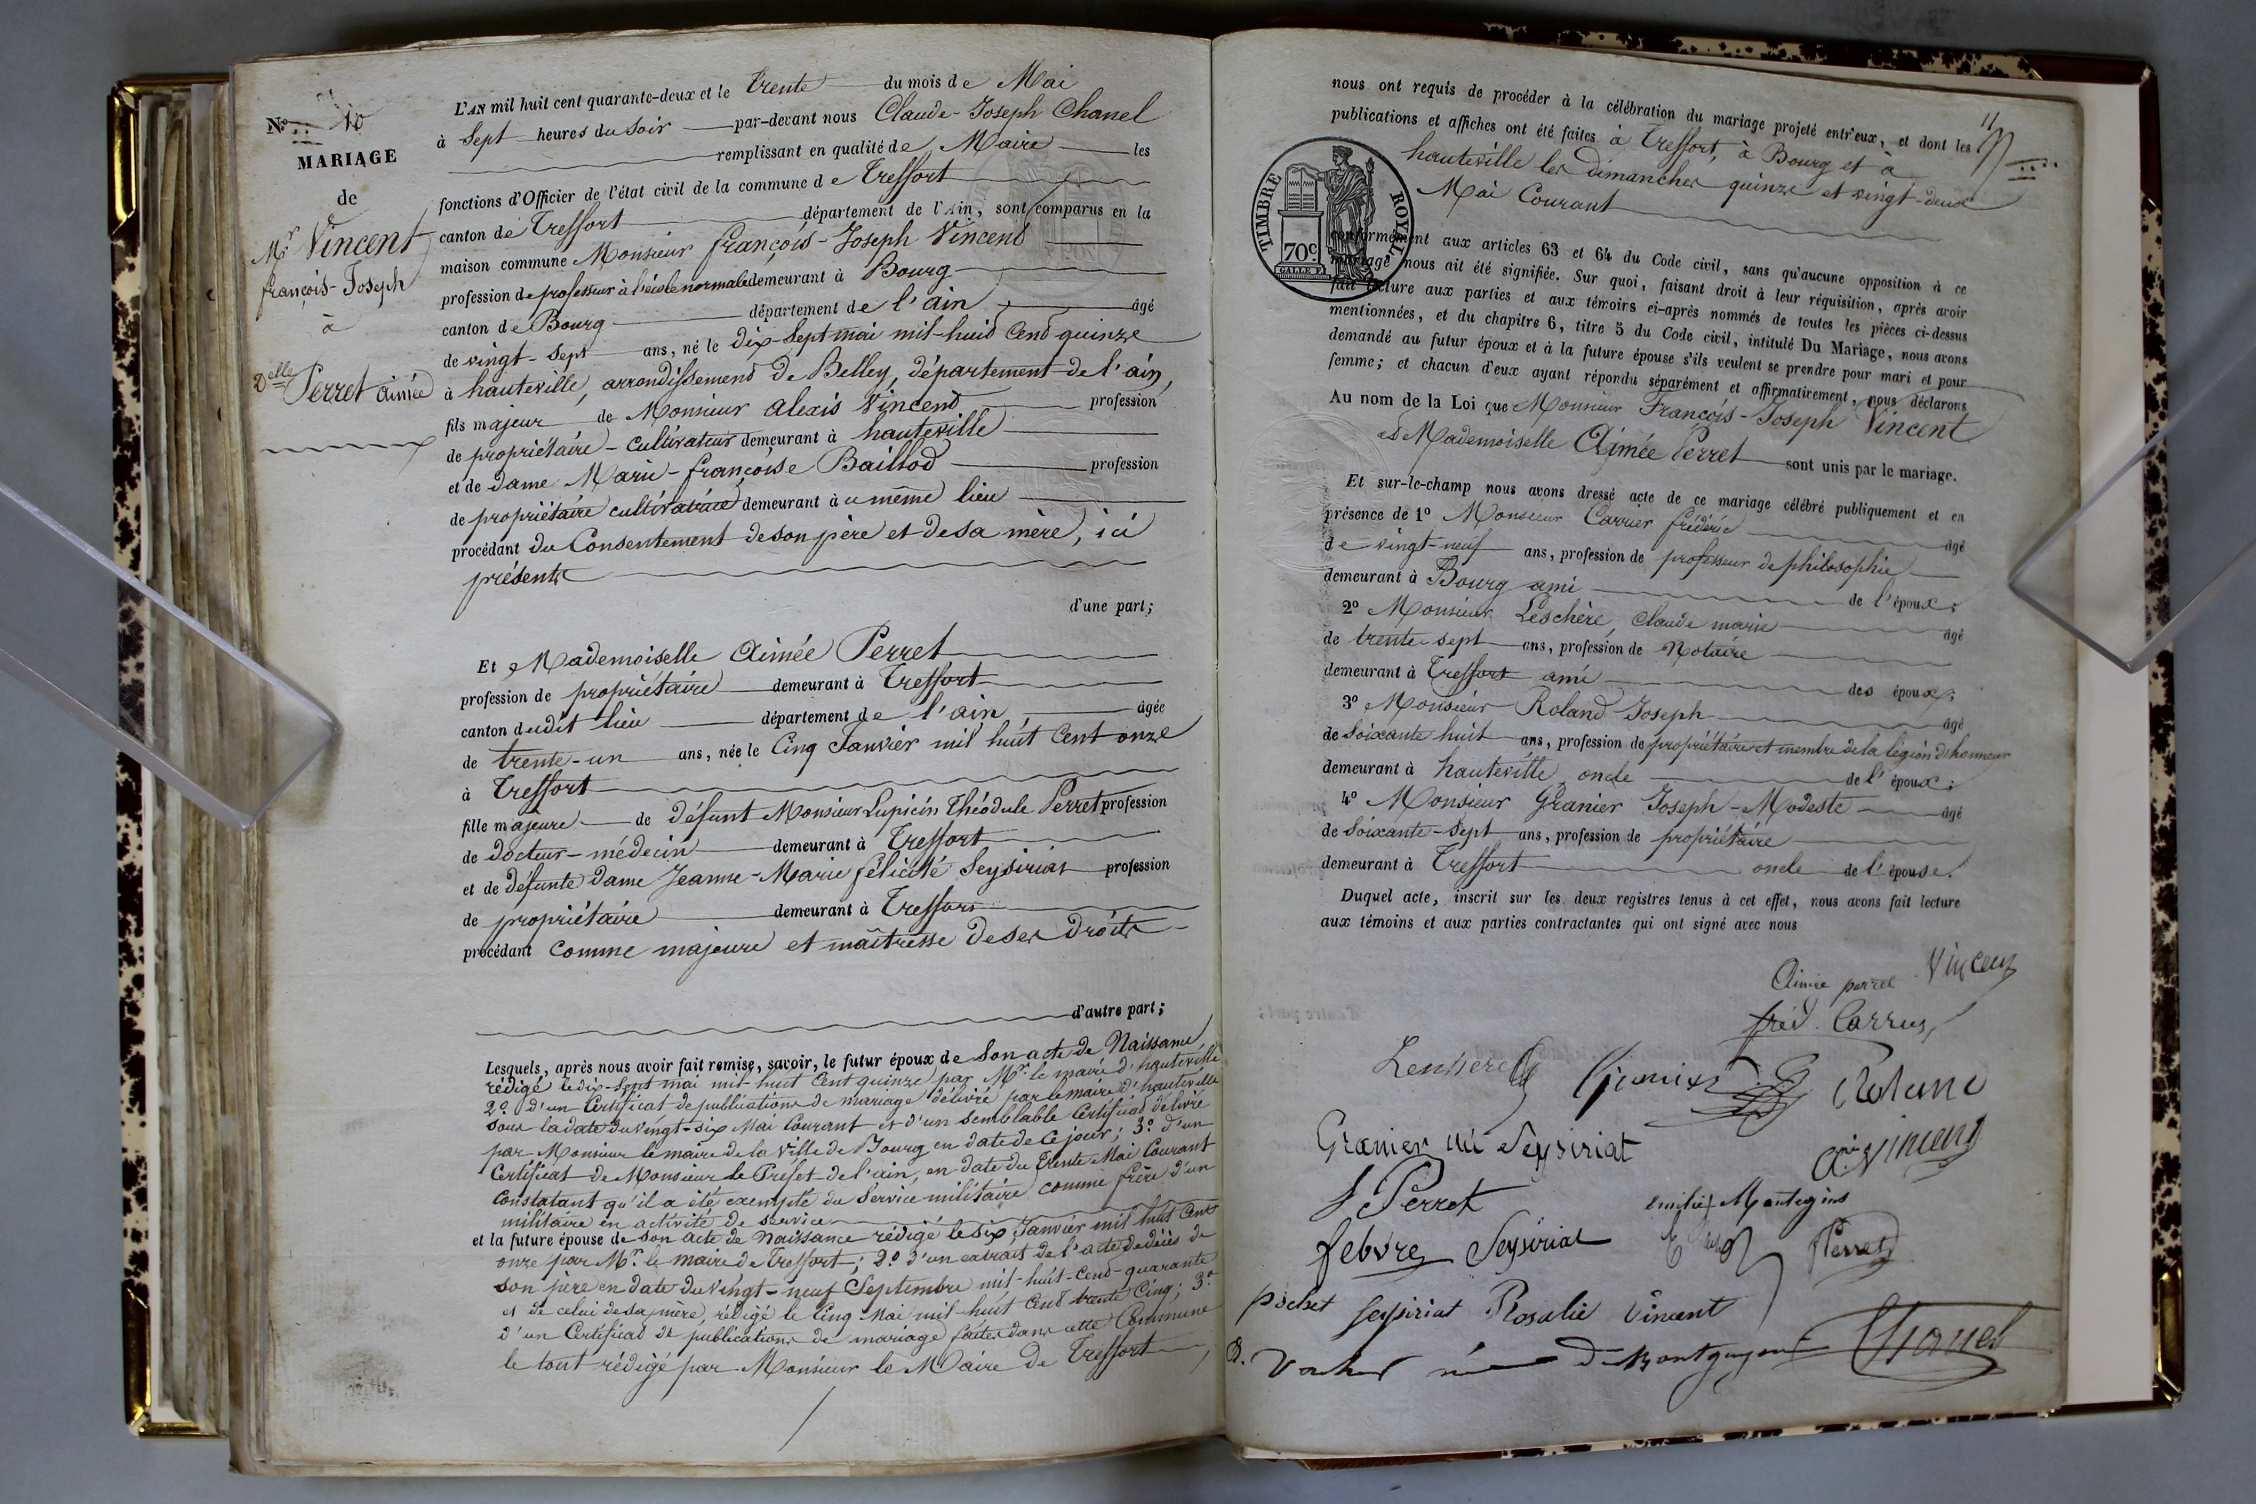 Nº 10
MARIAGE
de
Mr Vincent
françois-Joseph
à
Delle Perret aimée
L'AN mil huit cent quarante-deux et le trente du mois de Mai
à Sept heures du Soir par-devant nous Claude-Joseph Chanel
remplissant en qualité de Maire les
fonctions d'Officier de l'état civil de la commune de Treffort
canton de Treffort département de l'Ain, sont comparus en la
maison commune Monsieur françois-Joseph Vincent
profession de professeur à l'école normale demeurant à Bourg
canton de Bourg département de l'ain âgé
de vingt-Sept ans, né le dix-Sept mai mil-huit Cent quinze
à hauteville, arrondissement de Belley, département de l'ain,
fils majeur de Monsieur alexis Vincent profession
de propriétaire-cultivateur demeurant à hauteville
et de dame Marie-françoise Baillod profession
de propriétaire cultivatrice demeurant à u même lieu
procédant du Consentement de son père et de sa mère, ici
présents
d'une part;
Et Mademoiselle Aimée Perret
profession de propriétaire demeurant à Treffort
canton dudit lieu département de l'ain âgée
de trente-un ans, née le Cinq Janvier mil huit Cent onze
à Treffort
fille majeure de défunt Monsieur Lupicin Théodule Perret profession
de docteur-médecin demeurant à Treffort
et de défunte dame Jeanne-Marie félicité Seysiriat profession
de propriétaire demeurant à Treffort
procédant comme majeure et maîtresse de ses droits
d'autre part;
Lesquels, après nous avoir fait remise, savoir, le futur époux de Son acte de Naissance
rédigé le dix-Sept mai mil huit Cent quinze par Mr. le maire d'hauteville
2º d'un Certificat de publications de mariage délivré par le maire d'hauteville
sous la date du vingt-six Mai Courant et d'un semblable Certificat délivré
par Monsieur le maire de la ville de Bourg en date de Ce jour; 3º d'un
Certificat de Monsieur le Préfet de l'ain, en date du trente Mai Courant
Constatant qu'il a été exempté du Service militaire comme frère d'un
militaire en activité de service
et la future épouse de Son acte de Naissance rédigé le six Janvier mil huit Cent
onze par Mr. le maire de Treffort; 2º d'un extrait de l'acte de décès de
son père en date du vingt-neuf Septembre mil-huit-Cent-quarante
et de celui de sa mère, rédigé le Cinq Mai mil huit Cent trente Cinq; 3º
d'un Certificat de publications de mariage faites dans cette Commune
le tout rédigé par Monsieur le Maire de Treffort
11
nous ont requis de procéder à la célébration du mariage projeté entr'eux, et dont les
publications et affiches ont été faites à Treffort, à Bourg et à
hauteville les dimanches quinze et vingt-deux
Mai Courant
TIMBRE ROYAL
70c.
conformément aux articles 63 et 64 du Code civil, sans qu'aucune opposition à ce
mariage nous ait été signifiée. Sur quoi, faisant droit à leur réquisition, après avoir
fait lecture aux parties et aux témoins ci-après nommés de toutes les pièces ci-dessus
mentionnées, et du chapitre 6, titre 5 du Code civil, intitulé Du Mariage, nous avons
demandé au futur époux et à la future épouse s'ils veulent se prendre pour mari et pour
femme; et chacun d'eux ayant répondu séparément et affirmativement, nous déclarons
Au nom de la Loi que Monsieur François-Joseph Vincent
et Mademoiselle Aimée Perret sont unis par le mariage.
Et sur-le-champ nous avons dressé acte de ce mariage célébré publiquement et en
présence de 1º Monsieur Carrier frédéric âgé
de vingt-neuf ans, profession de professeur de philosophie
demeurant à Bourg ami de l'époux;
2º Monsieur Leschère, Claude marie âgé
de trente sept ans, profession de Notaire
demeurant à Treffort ami des époux;
3º Monsieur Roland Joseph âgé
de Soixante huit ans, profession de propriétaire et membre de la légion d'honneur
demeurant à hauteville oncle de l'époux;
4º Monsieur Granier Joseph-Modeste âgé
de Soixante-Sept ans, profession de propriétaire
demeurant à Treffort oncle de l'épouse.
Duquel acte, inscrit sur les deux registres tenus à cet effet, nous avons fait lecture
aux témoins et aux parties contractantes qui ont signé avec nous
Aimée perret Vincent
fréd. Carrier
Granier Roland
Granier née Seysiriat Vincent
Perret emilie Montegins
febvre Seysiriat Perret
pochet Seysiriat Rosalie Vincent
née Chanel